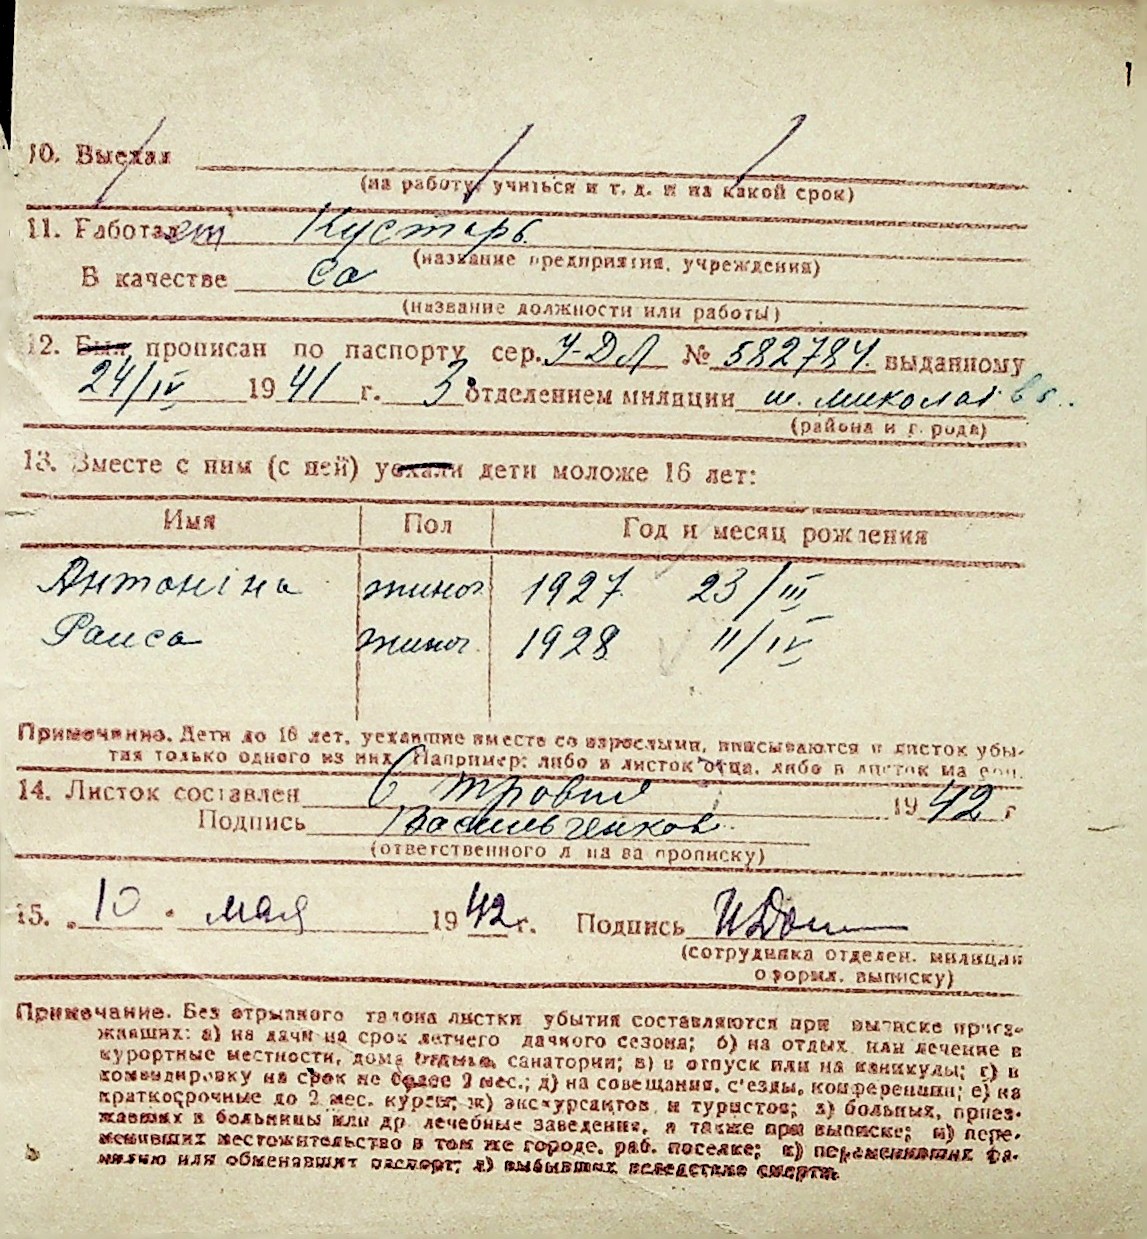 10. Выехал
(на работу, учиться и т. д. и на какой срок)
11. Работает Кустарь
(название предприятия, учреждения)
В качестве са
(название должности или работы)
12. Был прописан по паспорту сер. У-ДЛ № 582784. выданному
24/IV 1941 г. 3 отделением милиции м. Миколаїв
(района и города)
13. Вместе с ним (с ней) уехали дети моложе 16 лет:
Имя Пол Год и месяц рождения
Антоніна жиноч. 1927 23/III
Раиса жиноч. 1928 11/IV
Примечание. Дети до 16 лет, уехавшие вместе со взрослыми, вписываются в листок убы-
тия только одного из них. Например: либо в листок отца, либо в листок ма
14. Листок составлен 6 травня 1942 г
Подпись Васильченков
(ответственного л на за прописку)
15. „10 " мая 1942 г. Подпись
(сотрудника отделен. милиции
оформл. выписку)
Примечание. Без отрывного талона листки убытия составляются при выписке приез-
жавших: а) на дачи на срок летнего дачного сезона; б) на отдых или лечение в
курортные местности, дома отдыха, санатории; в) в отпуск или на каникулы; г) в
командировку на срок не более 2 мес.; д) на совещания, с'езды, конференции; е) на
краткосрочные до 2 мес. курсы; ж) экскурсантов и туристов; з) больных, приез-
жавших в больницы или др. лечебные заведения, а также при выписке; и) пере-
менивших местожительство в том же городе, раб. поселке; к) переменивших фа-
милию или обменявших паспорт; л) выбывших вследствие смерти.